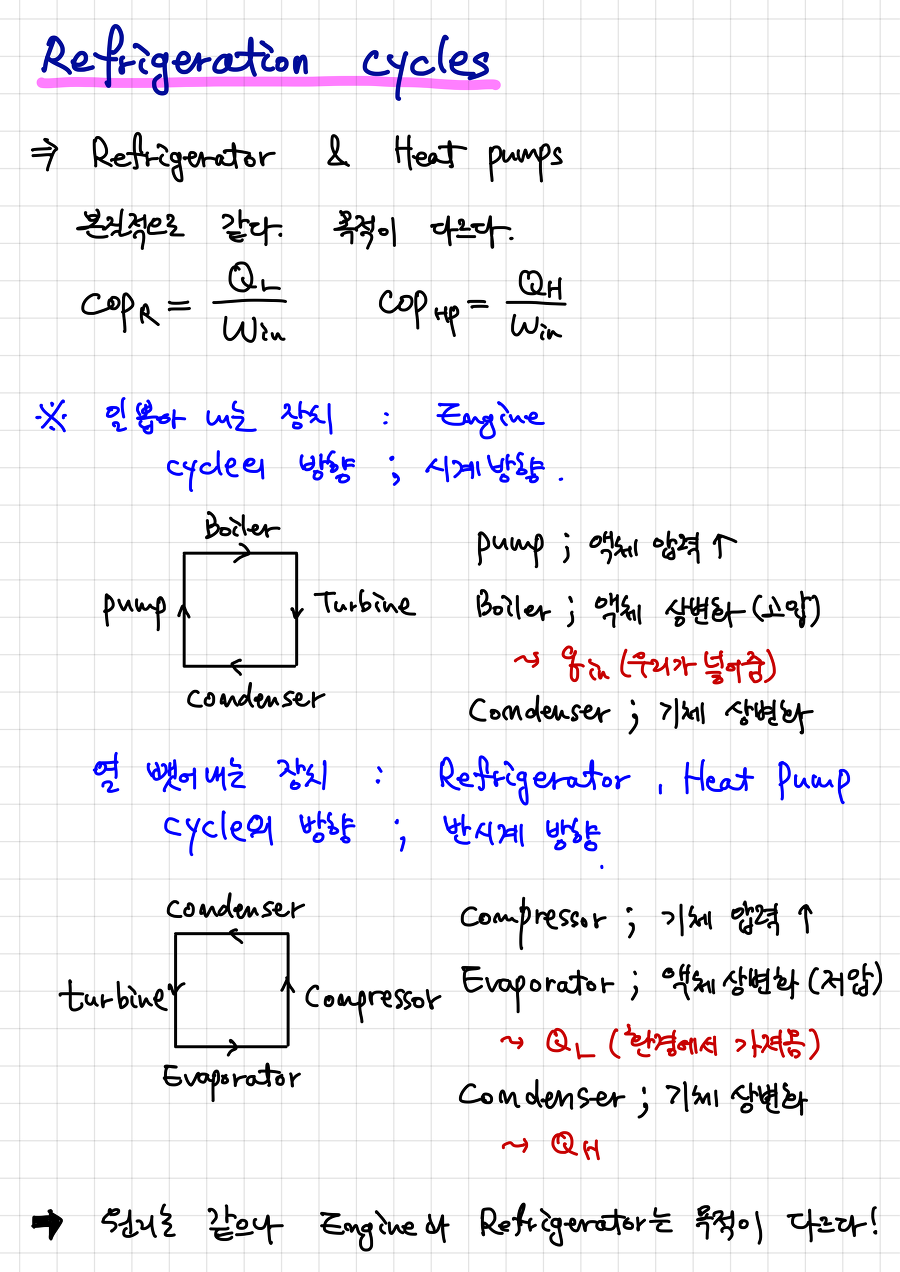 Refrigeration cycles
⇒ Refrigerator & Heat pumps
본질적으로 같다. 목적이 다르다.
COP_R = Q_L / W_in COP_HP = Q_H / W_in
※ 일 뽑아 내는 장치 : Engine
cycle의 방향 ; 시계방향.
Boiler
pump
Turbine
Condenser
pump ; 액체 압력 ↑
Boiler ; 액체 상변화 (고압)
~> q_in (우리가 넣어줌)
Condenser ; 기체 상변화
열 뺏어내는 장치 : Refrigerator, Heat Pump
cycle의 방향 ; 반시계 방향.
Condenser
turbine
Compressor
Evaporator
Compressor ; 기체 압력 ↑
Evaporator ; 액체 상변화 (저압)
~> Q_L (환경에서 가져옴)
Condenser ; 기체 상변화
~> Q_H
➡ 원리는 같으나 Engine과 Refrigerator는 목적이 다르다!